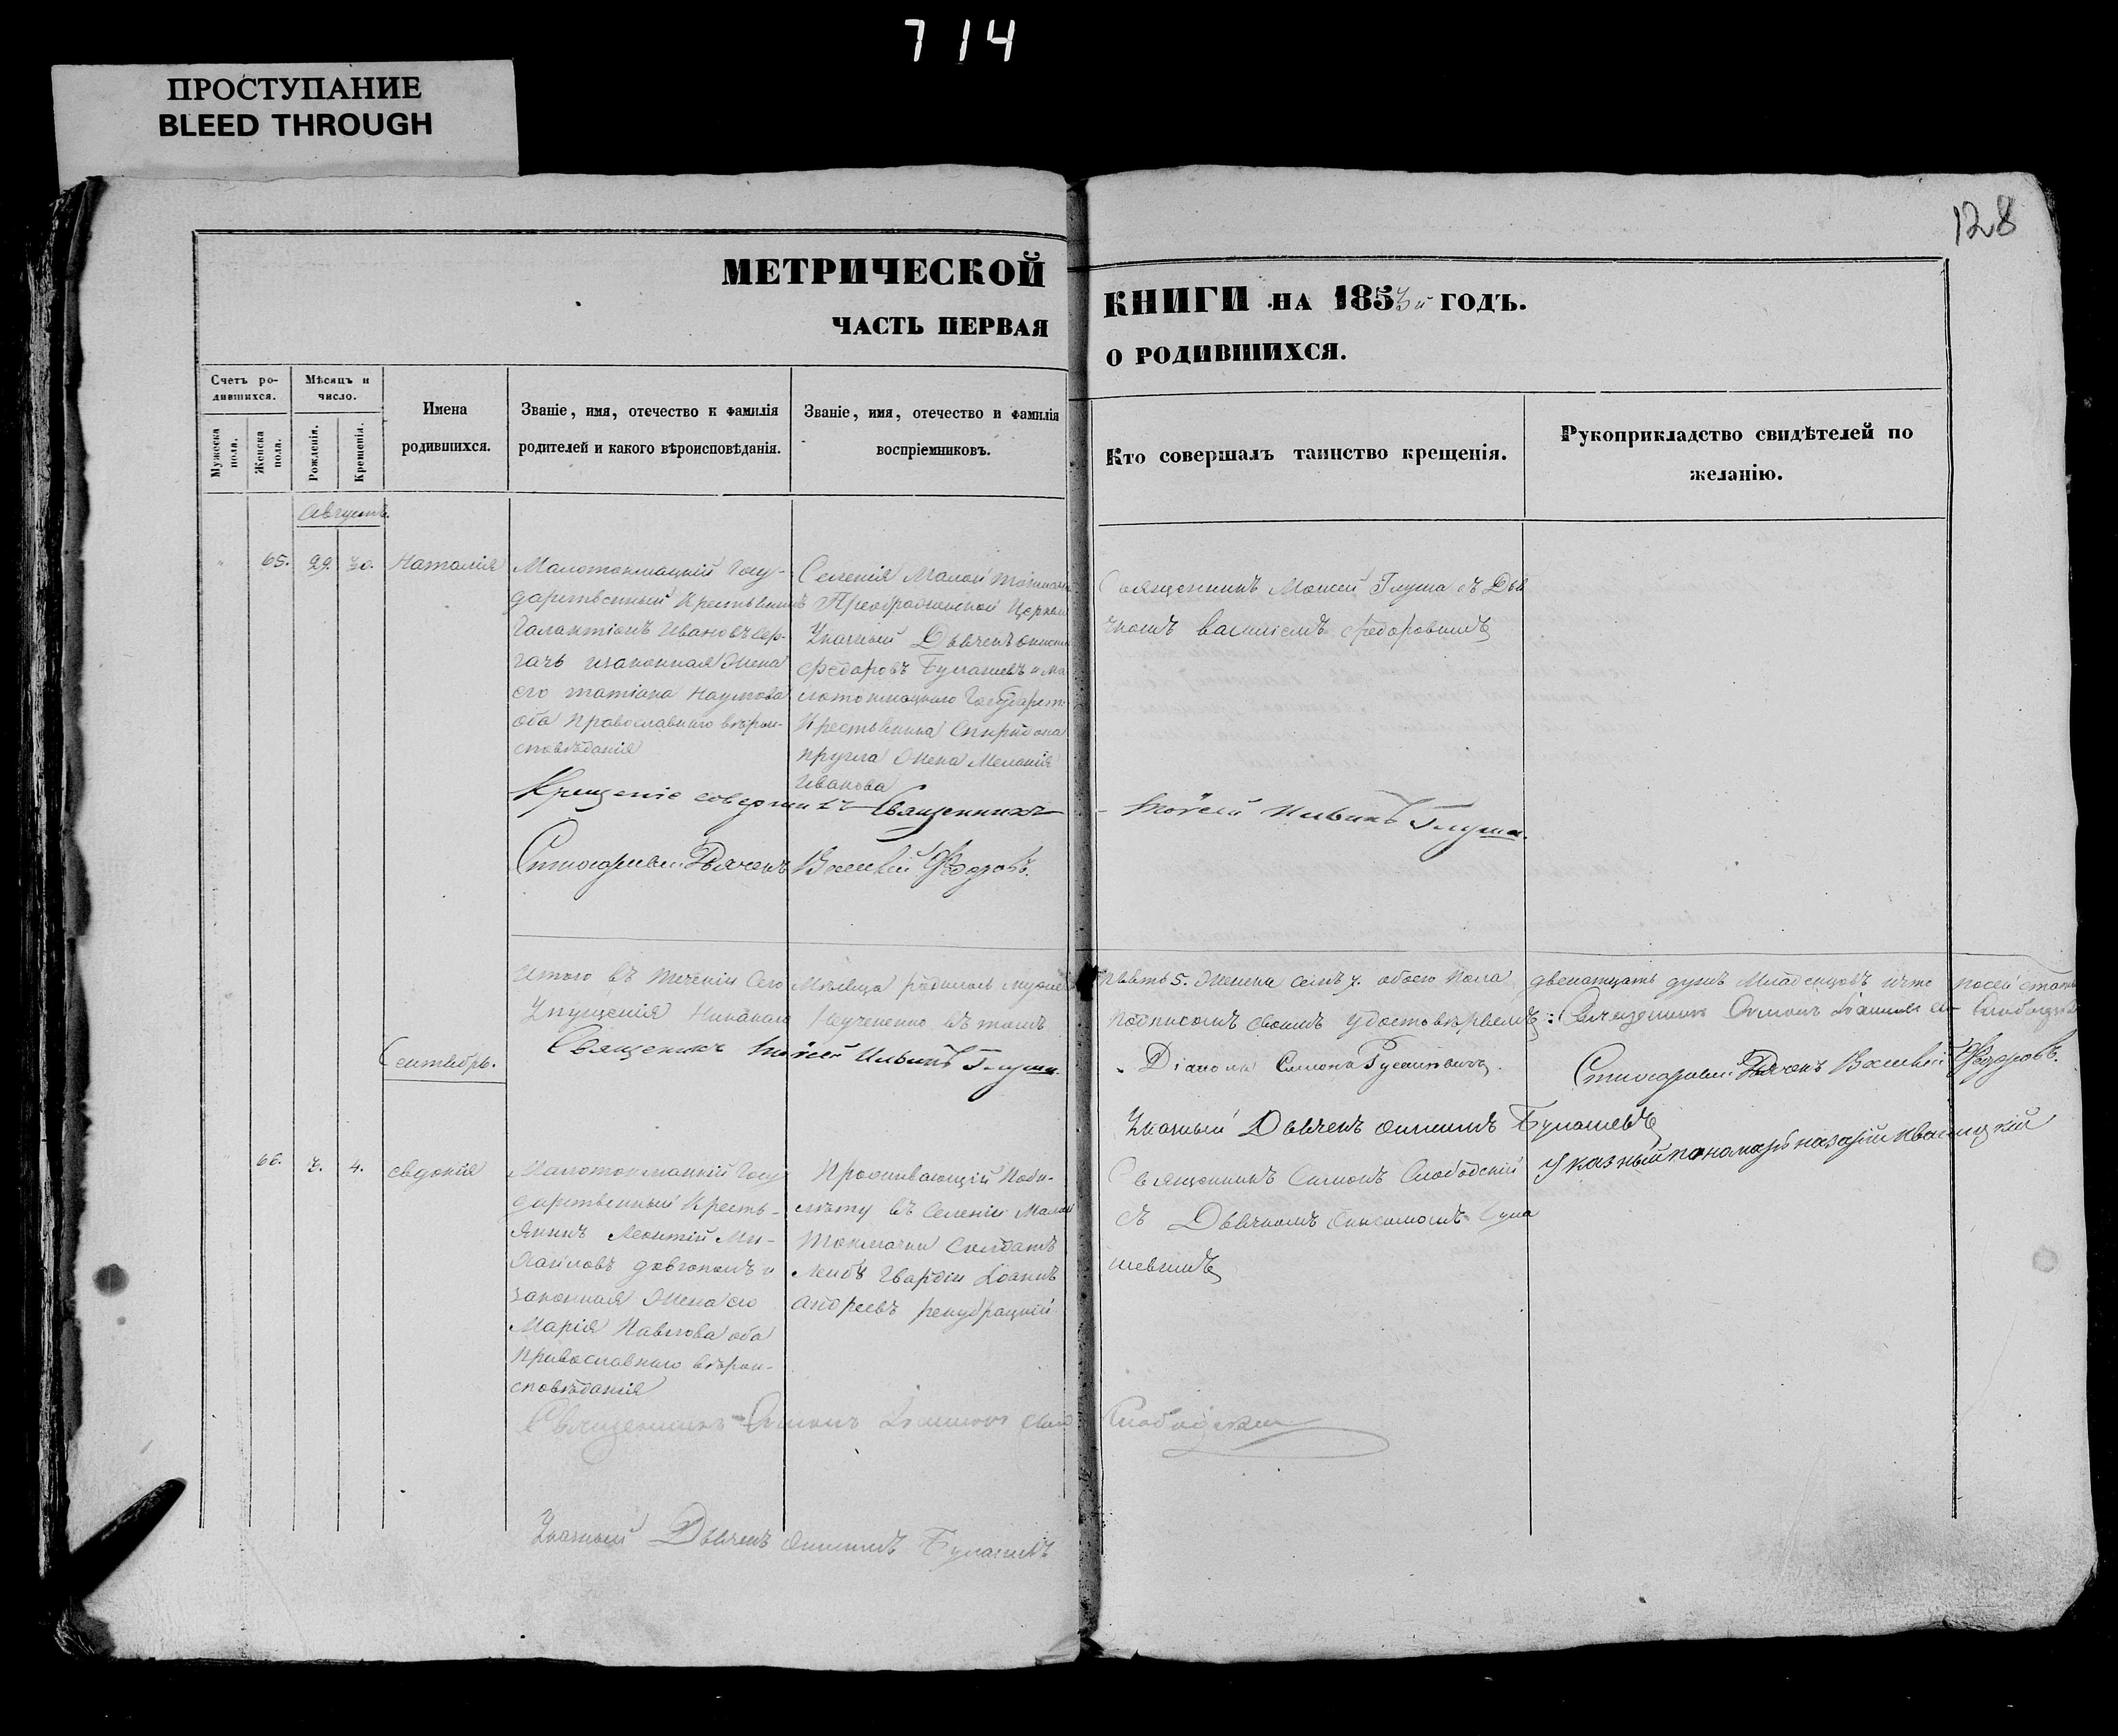 714
ПРОСТУПАНИЕ
BLEED THROUGH
128
МЕТРИЧЕСКОЙ
ЧАСТЬ ПЕРВАЯ
КНИГИ НА 1853й ГОДЪ.
О РОДИВШИХСЯ.
Счетъ ро-
дившихся.
Мужеска пола.
Женска пола.
Мѣсяцъ и
число.
Рожденія.
Крещенія.
Имена
родившихся.
Званіе, имя, отечество и фамилія
родителей и какого вѣроисповѣданія.
Званіе, имя, отечество и фамилія
воспріемниковъ.
Кто совершалъ таинство крещенія.
Рукоприкладство свидѣтелей по
желанію.
Августъ.
65. 29. 30. Наталія
Малотокмацкій Госу-
дарственный Крестьянинъ
Галактіонъ Ивановъ
законная Жена
его Татіана Наумова
оба Православнаго вѣрои-
сповѣданія
Селенія Малой Токмачки
Преображенской Церкви
Указный Дьячекъ Онисимъ
Федоровъ Булашевъ и Ма
лотокмацкаго Государств.
Крестьянина Спиридона
Жена Меланія
Иванова
Священникъ Моисей Глуша съ Дья
чкомъ Василіемъ Федоровымъ
Крещеніе совершилъ Священникъ
Моѵсей Ильинъ Глуша.
Дьячекъ Василій Федоровъ.
Итого въ теченіи Сего Мѣсяца родилось мужеска
пять 5. Женска семь 7. обоего пола двенатцать душъ Младенцовъ и что по сей статьѣ
Упущенія Никакого Неучинено въ томъ
подписомъ своимъ удостовѣряемъ: Священникъ Симонъ Слободскій
Священникъ Моѵсей Ильинъ Глуша.
Діаконъ Симонъ
Дьячекъ Василій Федоровъ.
Указный Дьячекъ Онисимъ Булашевъ
Указный пономарь Назарій
Сентябрь.
66. 3. 4. Евдокія
Малотокмацкій Госу
дарственный Кресть-
янинъ Леонтій Ми-
хайловъ Довгополъ и
законная Жена его
Марія Павлова оба
Православнаго вѣрои-
сповѣданія
Проживающій по би-
лету въ Селеніи Малой
Токмачки Солдатъ
Лейбъ Гвардіи Іоаннъ
Андреевъ
Священникъ Симонъ Слободскій
съ Дьячкомъ Онисимомъ Була
шевымъ
Священникъ Симонъ Слободскій
Указный Дьячекъ Онисимъ Булашевъ